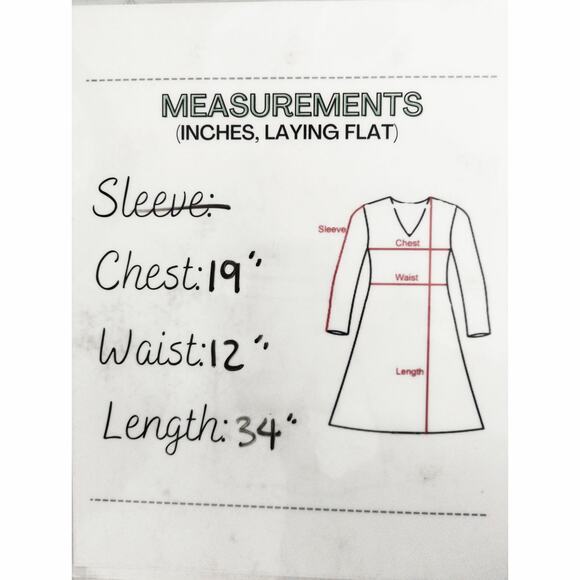 MEASUREMENTS
(INCHES, LAYING FLAT)
Sleeve:
Chest: 19"
Waist: 12"
Length: 34"
Sleeve
Chest
Waist
Length